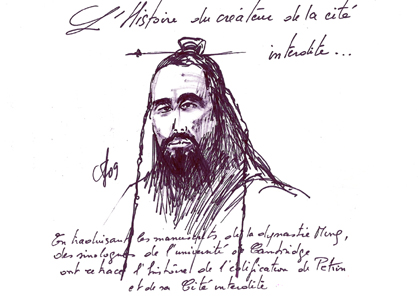 L'Histoire du créateur de la cité
interdite...
09
En traduisant les manuscrits de la dynastie Ming,
des sinologues de l'université de Cambridge
ont retracé l'histoire de l'édification de Pékin
et de sa Cité interdite